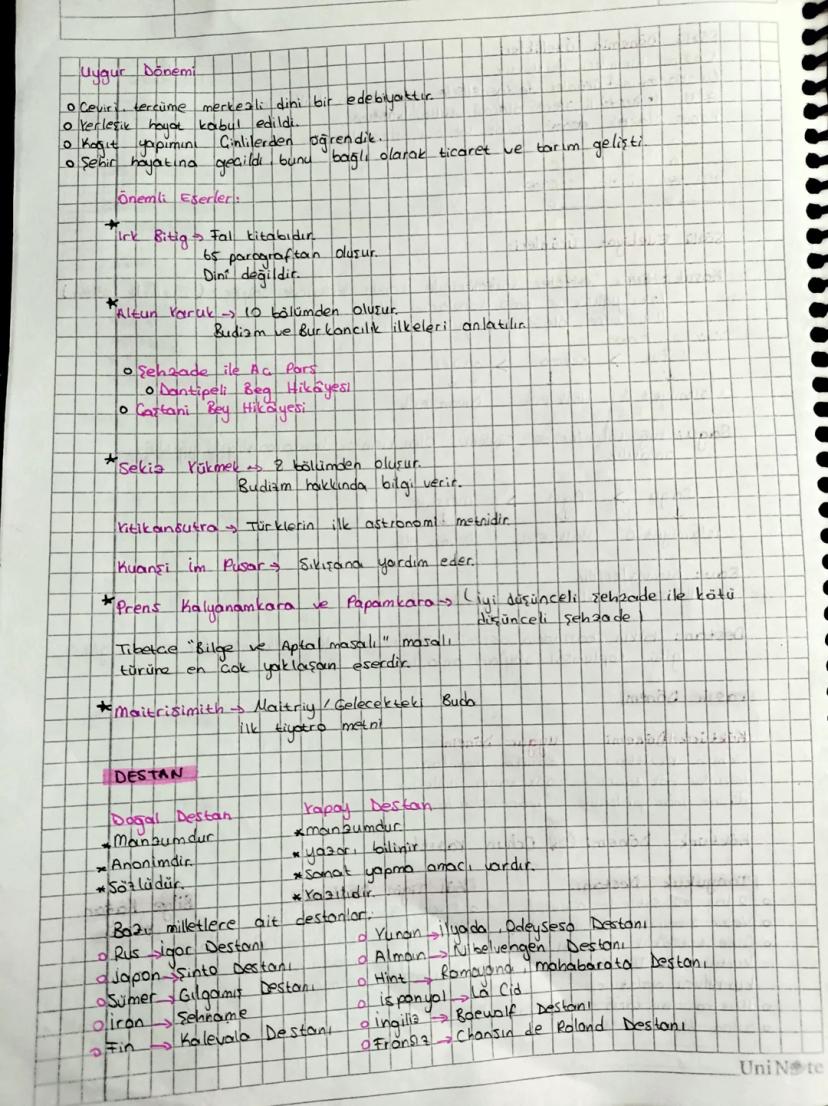 Uygur Dönemi
o Çeviri, tercüme merkezli dini bir edebiyattır.
o Yerleşik hayat kabul edildi.
o Kağıt yapımını Çinlilerden öğrendik.
o Şehir hayatına geçildi bunu bağlı olarak ticaret ve tarım gelişti.
Önemli Eserler:
* Irk Bitig → Fal kitabıdır.
65 paragraftan oluşur.
Dini değildir.
* Altun Yaruk → 10 bölümden oluşur.
Budizm ve Burkancılık ilkeleri anlatılır.
o Şehzade ile Aç Pars
o Dantipali Beg Hikâyesi
o Çaştani Bey Hikâyesi
* Sekiz Yükmek → 2 bölümden oluşur.
Budizm hakkında bilgi verir.
Yitikansutra → Türklerin ilk astronomi metnidir.
Kuanşi im Pusar → Sıkışana yardım eder.
* Prens Kalyanamkara ve Papamkara → (iyi düşünceli şehzade ile kötü
düşünceli şehzade)
Tibetçe "Bilge ve Aptal masalı" masalı
türüne en çok yaklaşan eserdir.
* Maitrisimith → Maitriy / Gelecekteki Buda
ilk tiyatro metni
DESTAN
Doğal Destan Yapay Destan
* Manzumdur * manzumdur
* Anonimdir. * yazarı bilinir
* Sözlüdür. * sanat yapma amacı vardır.
* Yazılıdır
Bazı milletlere ait destanlar:
o Rus → İgor Destanı o Yunan → İlyada, Odeysesa Destanı
o Japon → Şinto Destanı o Alman → Nibelvengen Destanı
o Sümer → Gılgamış Destanı o Hint → Ramayana, mahabarata Destanı
o İran → Şehname o İspanyol → La Cid
o Fin → Kalevala Destanı o İngiliz → Boewulf Destanı
o Fransız → Chansın de Roland Destanı
UniNote